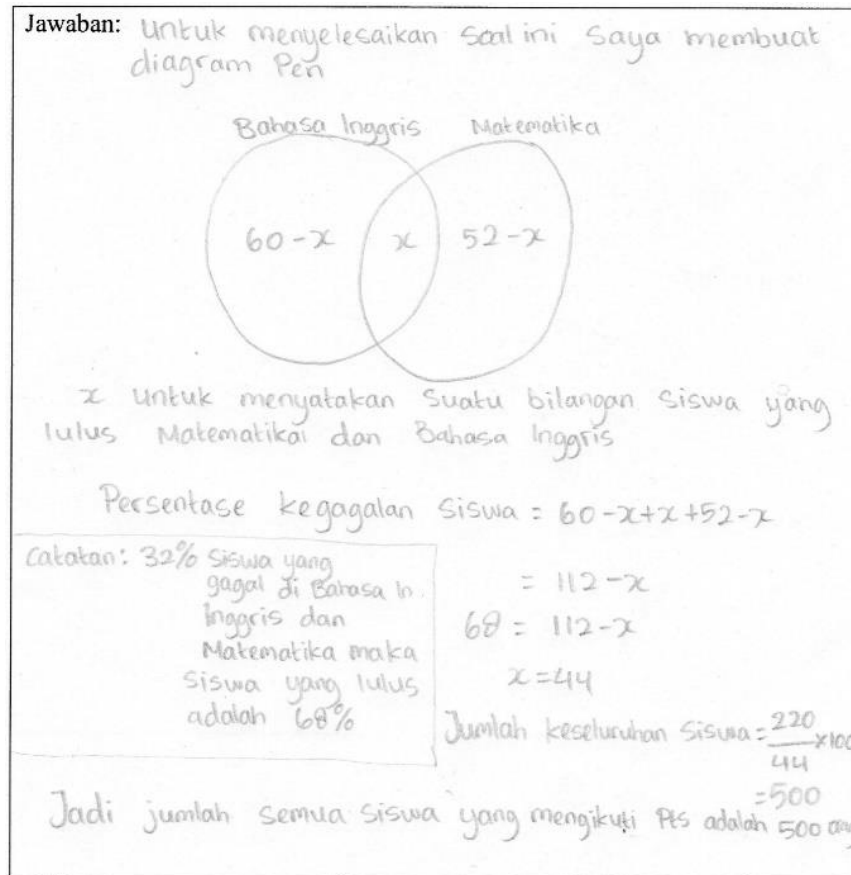 Jawaban: untuk menyelesaikan soal ini saya membuat
diagram Pen
Bahasa Inggris Matematika
60-x x 52-x
x untuk menyatakan suatu bilangan siswa yang
lulus Matematika dan Bahasa Inggris
Persentase kegagalan siswa = 60-x+x+52-x
catatan: 32% siswa yang
gagal di Bahasa In.
Inggris dan
Matematika maka
siswa yang lulus
adalah 68%
= 112-x
68 = 112-x
x=44
Jumlah keseluruhan siswa = 220/44 x100
=500
Jadi jumlah semua siswa yang mengikuti Pts adalah 500